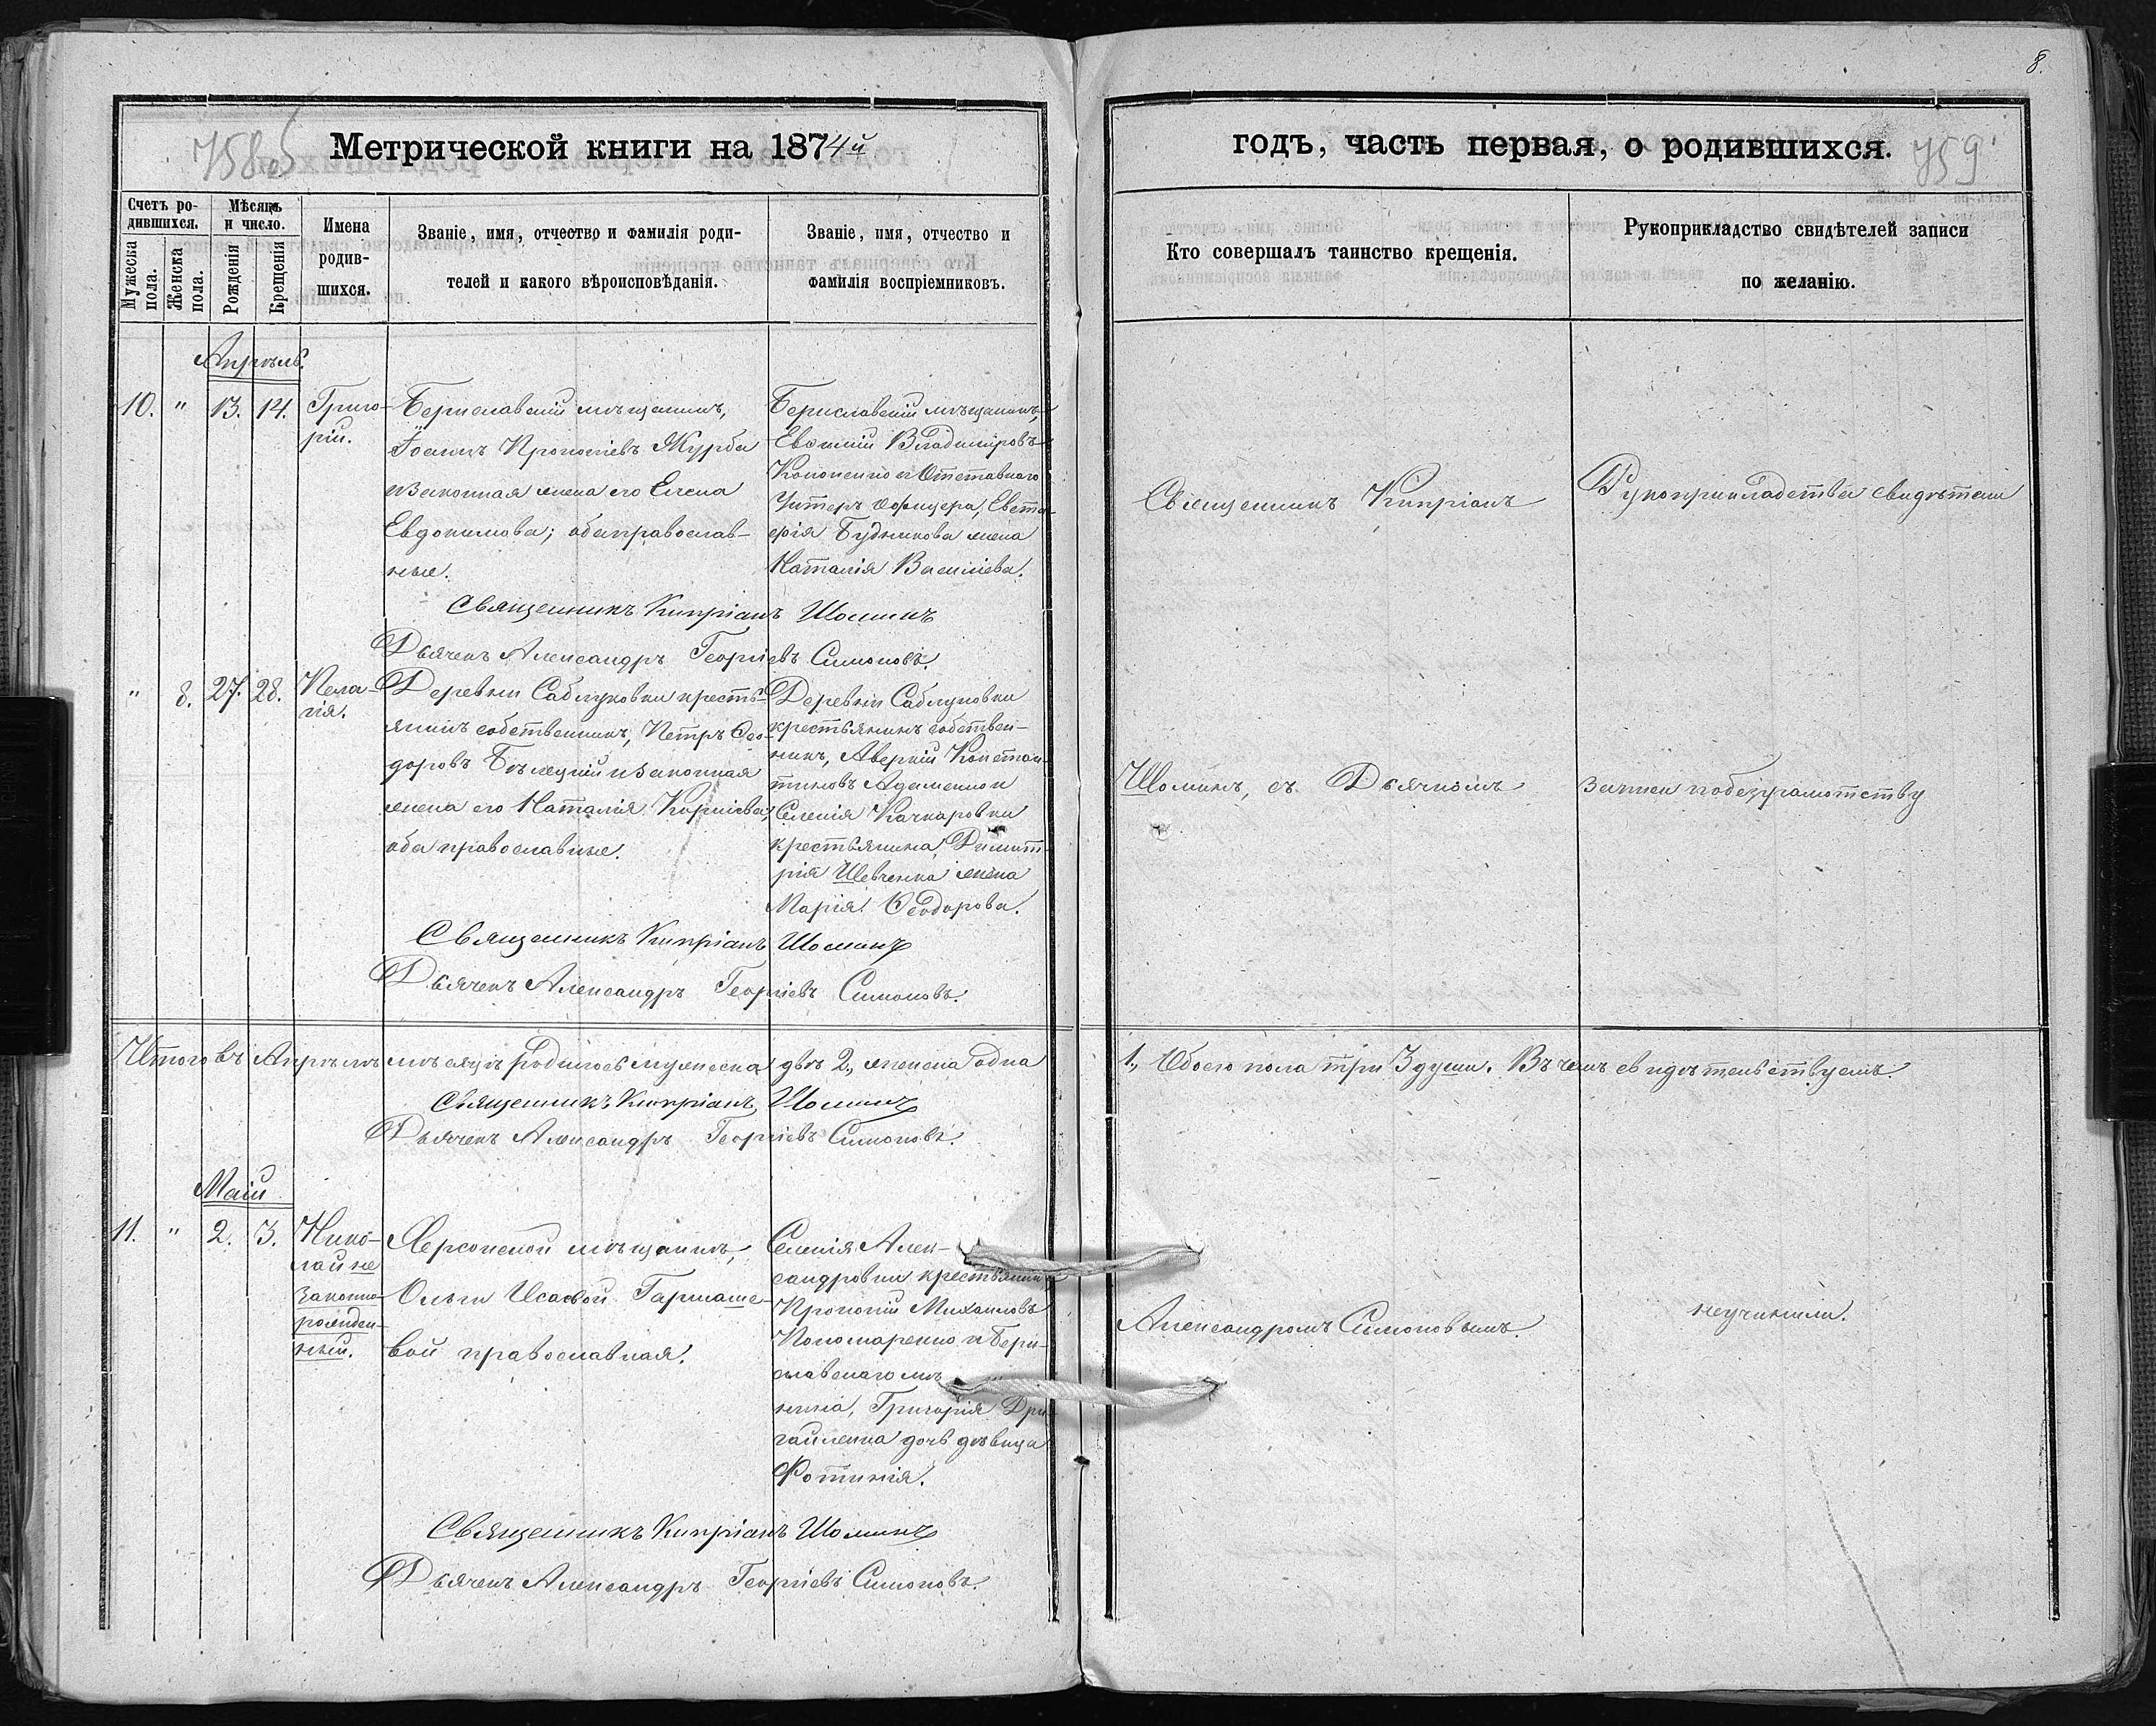 8.
758об
Метрической книги на 1874й
годъ, часть первая, о родившихся.
759
Счетъ родившихся.
Мѣсяцъ и число.
Мужеска пола.
Женска пола.
Рожденія
Крещенія
Имена
родив-
шихся.
Званіе, имя, отчество и фамилія роди-
телей и какого вѣроисповѣданія.
Званіе, имя, отчество и
фамилія воспріемниковъ.
Кто совершалъ таинство крещенія.
Рукоприкладство свидѣтелей записи
по желанію.
Апрѣль.
10. " 13. 14.
Григо-
рій.
Бериславскій мѣщанинъ,
Іоаннъ Прокопіевъ Журба
и законная жена его Елена
Евдокимова; оба православ-
ные.
Бериславскій мѣщанинъ,
Евфимій Владиміровъ
Кононенко и Отставного
Унтеръ офицера, Евста-
фія Будникова жена
Наталія Василіева.
Священникъ Кипріанъ Шоминъ
Дьячекъ Александръ Георгіевъ Симоновъ.
" 8. 27. 28.
Пела-
гія.
Деревни Саблуковки кресть-
янинъ собственникъ, Петръ Ѳео-
доровъ Бѣлецкій и законная
жена его Наталія Корніева;
оба православные.
Деревни Саблуковки
крестьянинъ собствен-
никъ, Аверкій Констан-
тиновъ Адаменко и
Селенія Качкаровки
крестьянина, Димит-
рія Шевченка жена
Марія Ѳеодорова.
Священникъ Кипріанъ Шоминъ
Дьячекъ Александръ Георгіевъ Симоновъ.
Итого въ Апрѣлѣ мѣсяцѣ родилось мужеска двѣ 2, женска одна
1, Обоего пола три 3 души. Въ чемъ свидѣтельствуемъ.
Священникъ Кипріанъ Шоминъ
Дьячекъ Александръ Георгіевъ Симоновъ.
Маій
11. " 2. 3.
Нико-
лай не
законно-
рожден-
ный.
Херсонской мѣщанки,
Ольги Исаевой Гармаше-
вой православная.
Селенія Алек-
сандровки крестьянинъ
Прокопій Михаиловъ
Пономаренко и Бери-
славскаго мѣ
нина, Григорія Дри-
гайленка дочь дѣвица
Фотинія.
Священникъ Кипріанъ Шоминъ
Дьячекъ Александръ Георгіевъ Симоновъ.
Священникъ Кипріанъ
Шоминъ, съ Дьячкомъ
Александромъ Симоновымъ.
Рукоприкладства свидѣтели
записи по безграмотству
неучинили.